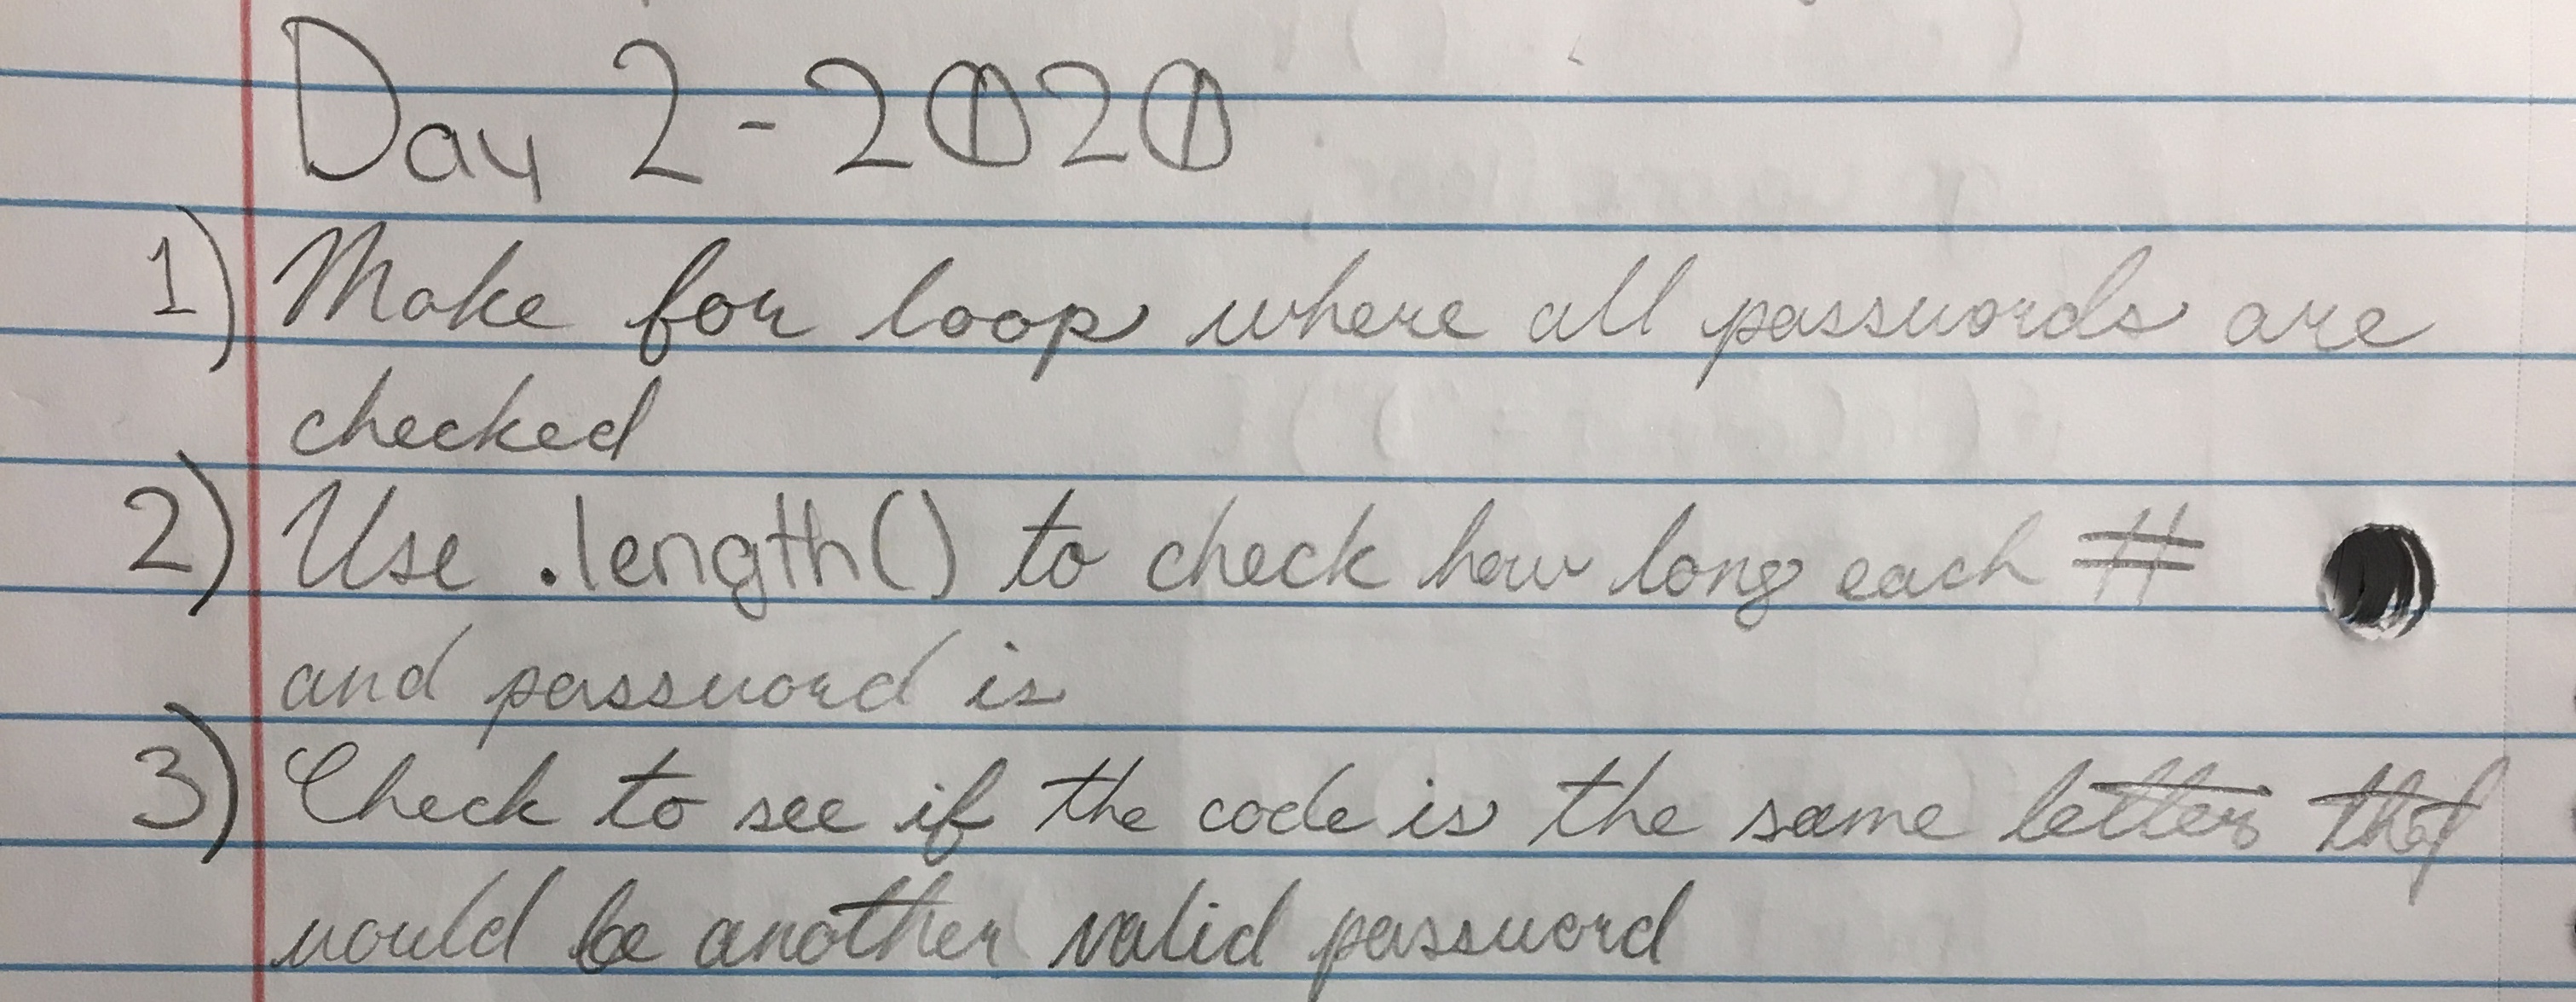 Day 2 - 2020
1) Make for loop where all passwords are
checked
2) Use .length() to check how long each #
and password is
3) Check to see if the code is the same letter that
would be another valid password